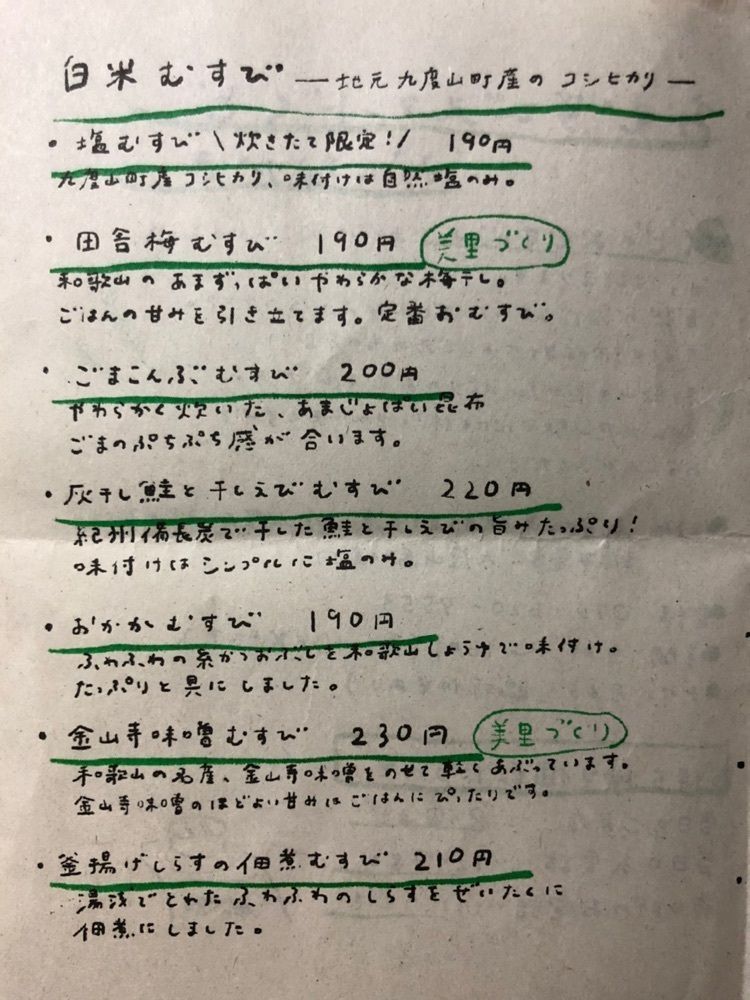 白米むすび ― 地元九度山町産のコシヒカリ ―
・塩むすび \炊きたて限定!/ 190円
九度山町産コシヒカリ、味付けは自然塩のみ。
・田舎梅むすび 190円 美里づくり
和歌山のあまずっぱいやわらかな梅干し。
ごはんの甘みを引き立てます。定番おむすび。
・ごまこんぶごむすび 200円
やわらかく炊いた、あまじょぱい昆布
ごまのぷちぷち感が合います。
・灰干し鮭と干しえびむすび 220円
紀州備長炭で干した鮭と干しえびの旨みたっぷり!
味付けはシンプルに塩のみ。
・おかかむすび 190円
ふわふわの糸かつおぶしを和歌山しょうゆで味付け。
たっぷりと具にしました。
・金山寺味噌むすび 230円 美里づくり
和歌山の名産、金山寺味噌をのせて軽くあぶっています。
金山寺味噌のほどよい甘みはごはんにぴったりです。
・釜揚げしらすの佃煮むすび 210円
湯浅でとれたふわふわのしらすをぜいたくに
佃煮にしました。